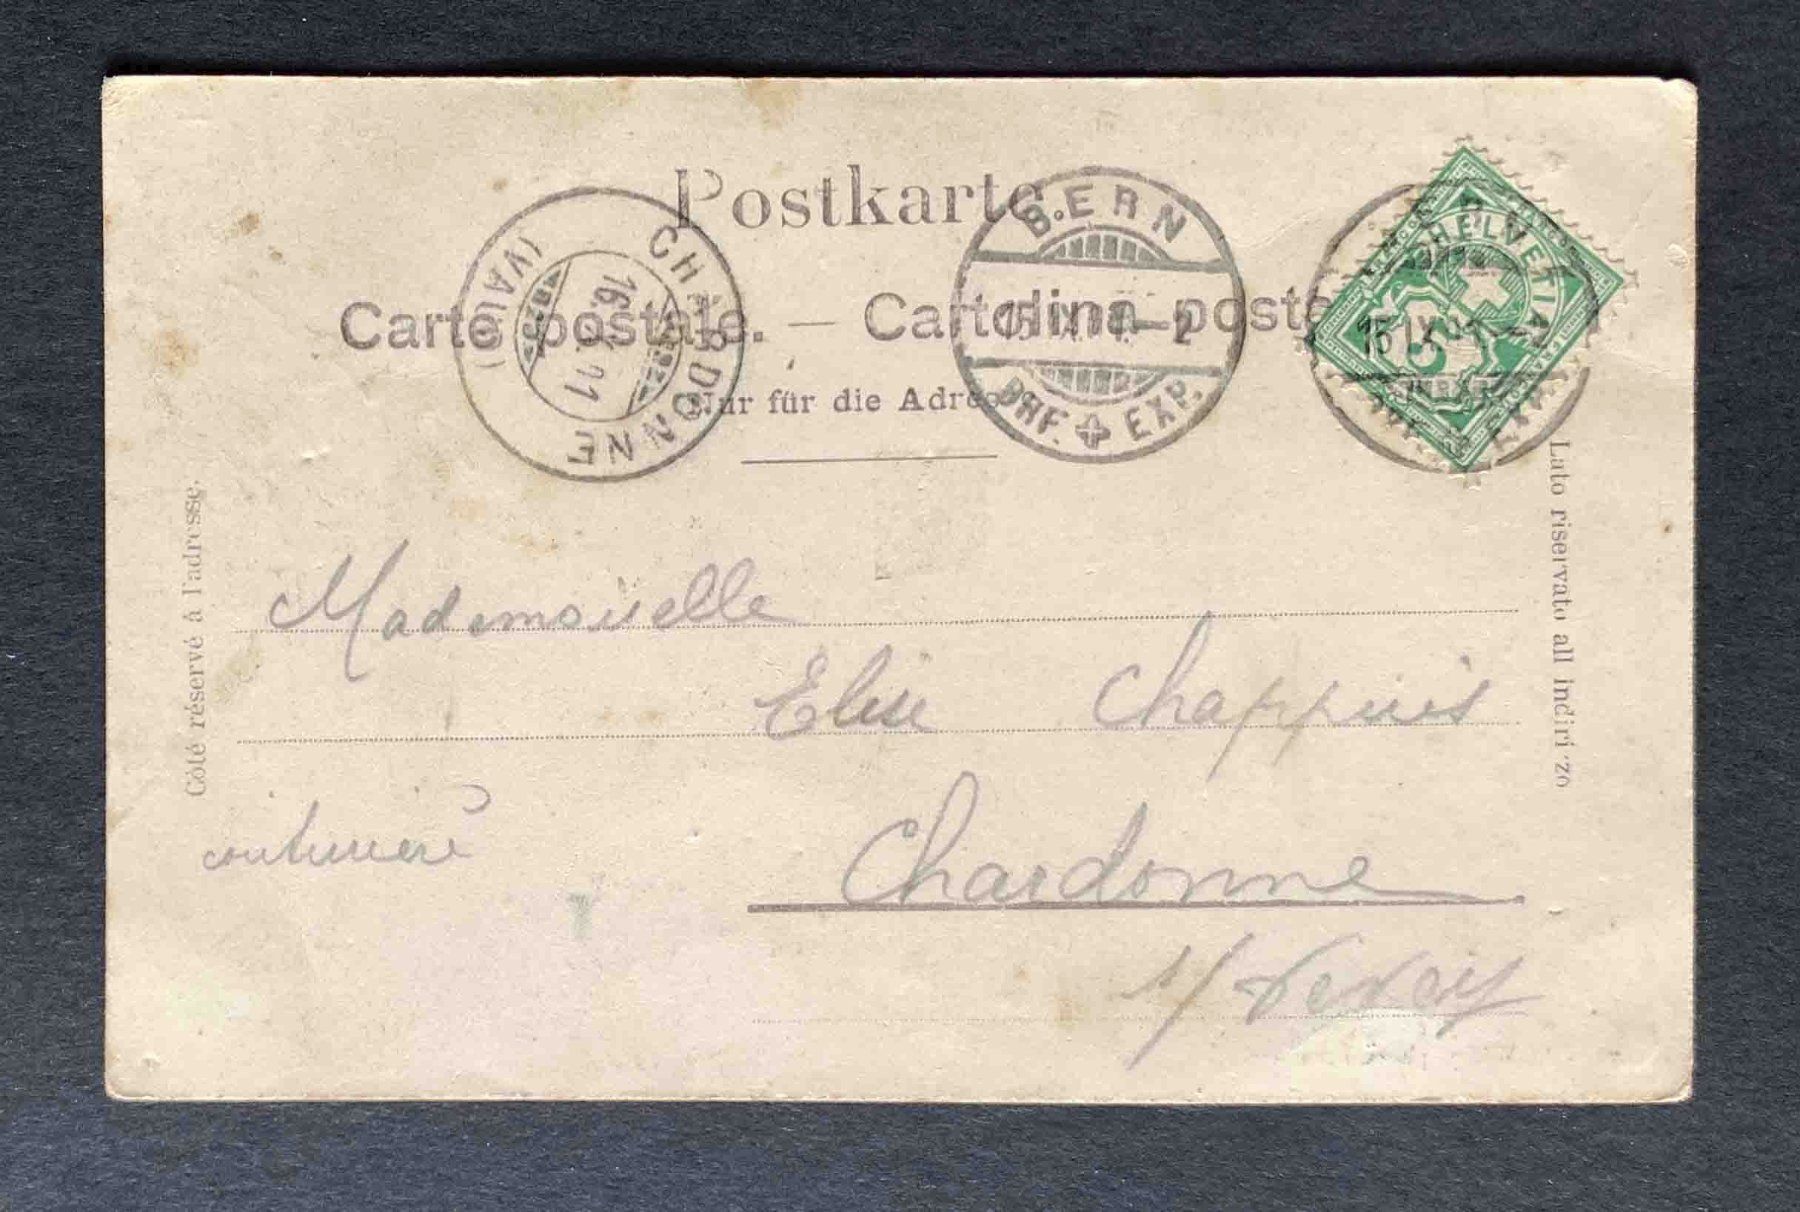 Postkarte.
Carte postale. — Cartolina postale
Nur für die Adresse
Côté réservé à l'adresse.
Lato riservato all indirizzo
CHARDONNE
(VAUD)
BERN
15.IX.01.–2
BRF. EXP.
HELVETIA
5
15.IX.01.–2
Mademoiselle
Elise Chappuis
couturière
Chardonne
s/ Vevey